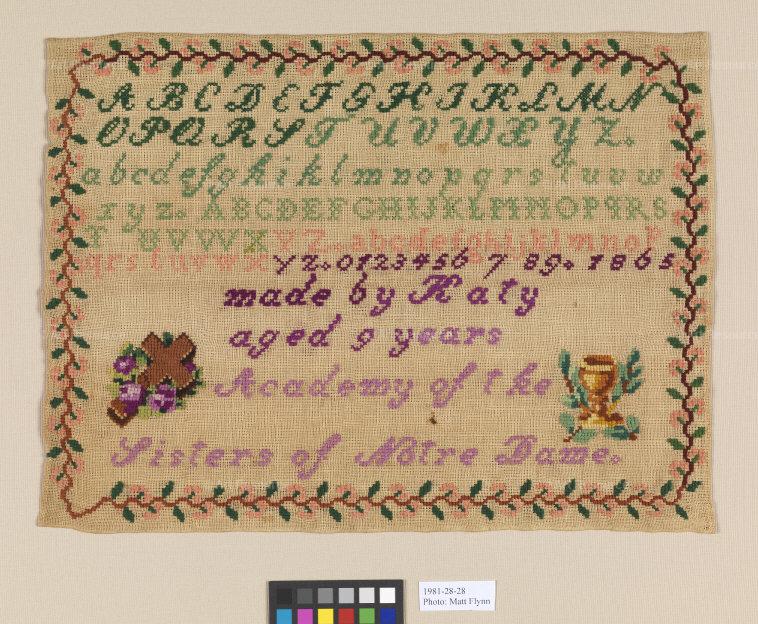 A B C D E F G H I K L M N
O P Q R S T U V W X Y Z.
a b c d e f g h i k l m n o p q r s t u v w
x y z. A B C D E F G H I J K L M N O P Q R S
T U V W X Y Z. a b c d e f g h i j k l m n o p
q r s t u v w x y z. 0 1 2 3 4 5 6 7 8 9. 1865.
made by Katy
aged 9 years
Academy of the
Sisters of Notre Dame.
1981-28-28
Photo: Matt Flynn